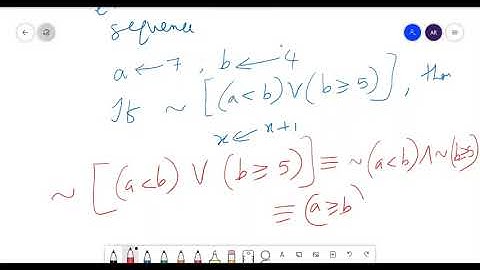 sequence
a ← 7 , b ← 4
If ~ [(a < b) ∨ (b ≥ 5)], then
x ← n+1
~ [(a < b) ∨ (b ≥ 5)] ≡ ~(a < b) ∧ ~(b ≥ 5)
≡ (a ≥ b)
AR